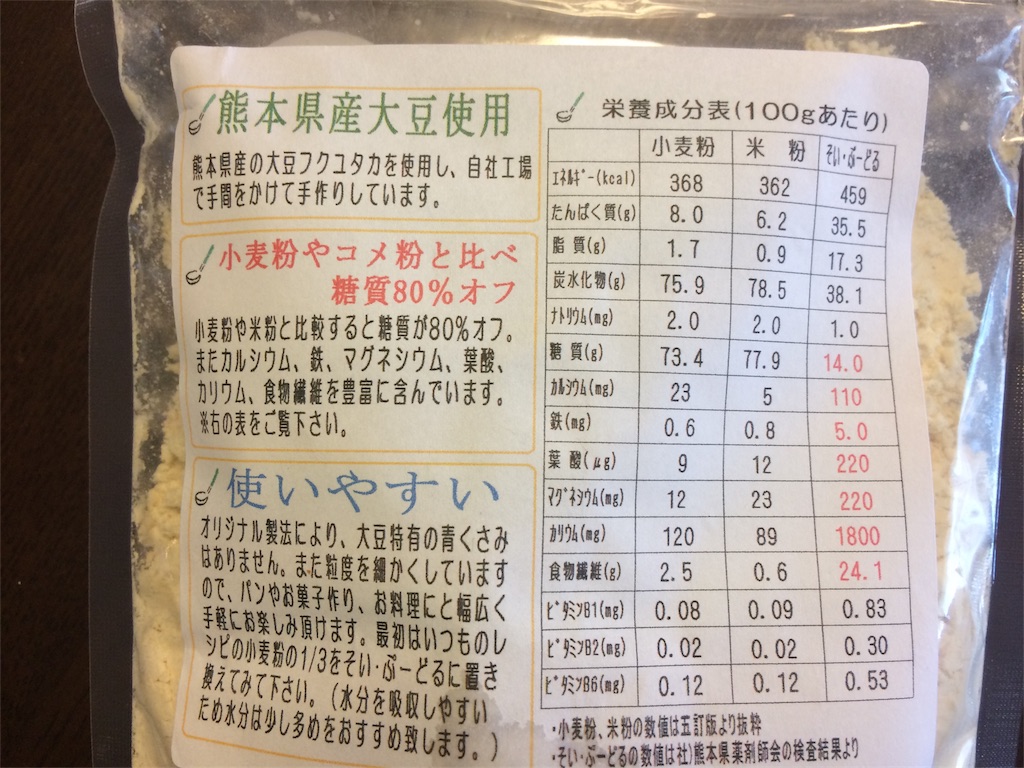 熊本県産大豆使用
熊本県産の大豆フクユタカを使用し、自社工場
で手間をかけて手作りしています。
小麦粉やコメ粉と比べ
糖質80％オフ
小麦粉や米粉と比較すると糖質が80％オフ。
またカルシウム、鉄、マグネシウム、葉酸、
カリウム、食物繊維を豊富に含んでいます。
※右の表をご覧下さい。
使いやすい
オリジナル製法により、大豆特有の青くさみ
はありません。また粒度を細かくしています
ので、パンやお菓子作り、お料理にと幅広く
手軽にお楽しみ頂けます。最初はいつものレ
シピの小麦粉の1/3をそい・ぶーどるに置き
換えてみて下さい。（水分を吸収しやすい
ため水分は少し多めをおすすめ致します。）
栄養成分表(100gあたり)
小麦粉 米 粉 そい・ぶーどる
エネルギー(kcal) 368 362 459
たんぱく質(g) 8.0 6.2 35.5
脂 質(g) 1.7 0.9 17.3
炭水化物(g) 75.9 78.5 38.1
ナトリウム(mg) 2.0 2.0 1.0
糖 質(g) 73.4 77.9 14.0
カルシウム(mg) 23 5 110
鉄(mg) 0.6 0.8 5.0
葉 酸(μg) 9 12 220
マグネシウム(mg) 12 23 220
カリウム(mg) 120 89 1800
食物繊維(g) 2.5 0.6 24.1
ビタミンB1(mg) 0.08 0.09 0.83
ビタミンB2(mg) 0.02 0.02 0.30
ビタミンB6(mg) 0.12 0.12 0.53
・小麦粉、米粉の数値は五訂版より抜粋
・そい・ぶーどるの数値は社)熊本県薬剤師会の検査結果より